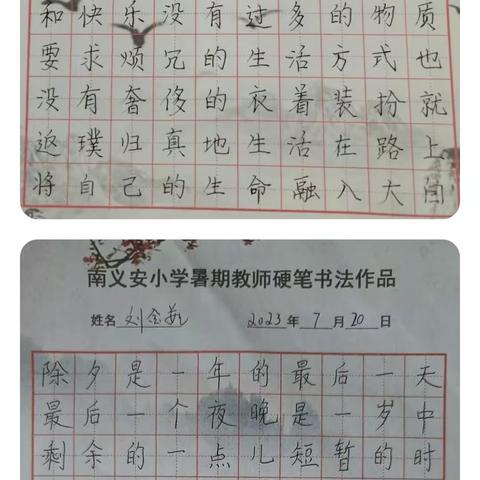 和快乐没有过多的物质
要求烦冗的生活方式也
没有奢侈的衣着装扮就
返璞归真地生活在路上
将自己的生命融入大自
南义安小学暑期教师硬笔书法作品
姓名 刘金 2023年7月20日
除夕是一年的最后一天
最后一个夜晚是一岁中
剩余的一点儿短暂的时